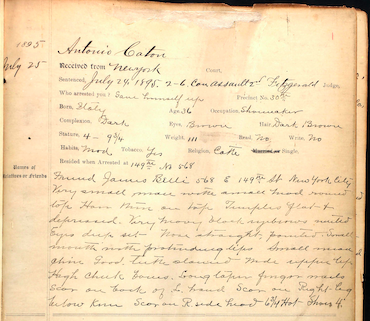 1895
July 25
Antonio Caton
Received from New York Court,
Sentenced, July 24, 1895, 2-6 Con Assault 2d Fitzgerald Judge,
Who arrested you? Gave himself up Precinct No. 30th
Born, Italy Age 36 Occupation Shoemaker
Complexion, Dark Eyes, Brown Hair Dark Brown
Stature, 4-9¾ Weight, 111 Read, No Write, No
Habits, Mod Tobacco, Yes Religion, Cath Single.
Resided when Arrested at 149th St 568
Names of
Relatives or Friends
Friend James Belli 568 E 149th St New York City
Very small man with a small head round
top Hair thin on top Temples flat &
depressed. Very heavy black eyebrows united
Eyes deep set Nose straight, pointed Small
mouth with protruding lips Small
chin Good teeth Wide upper lip
High Cheek bones. Long taper finger nails
Scar on back of L hand Scar on Right Leg
below Knee Scar on R side head 6¾ Hat Shoes 4